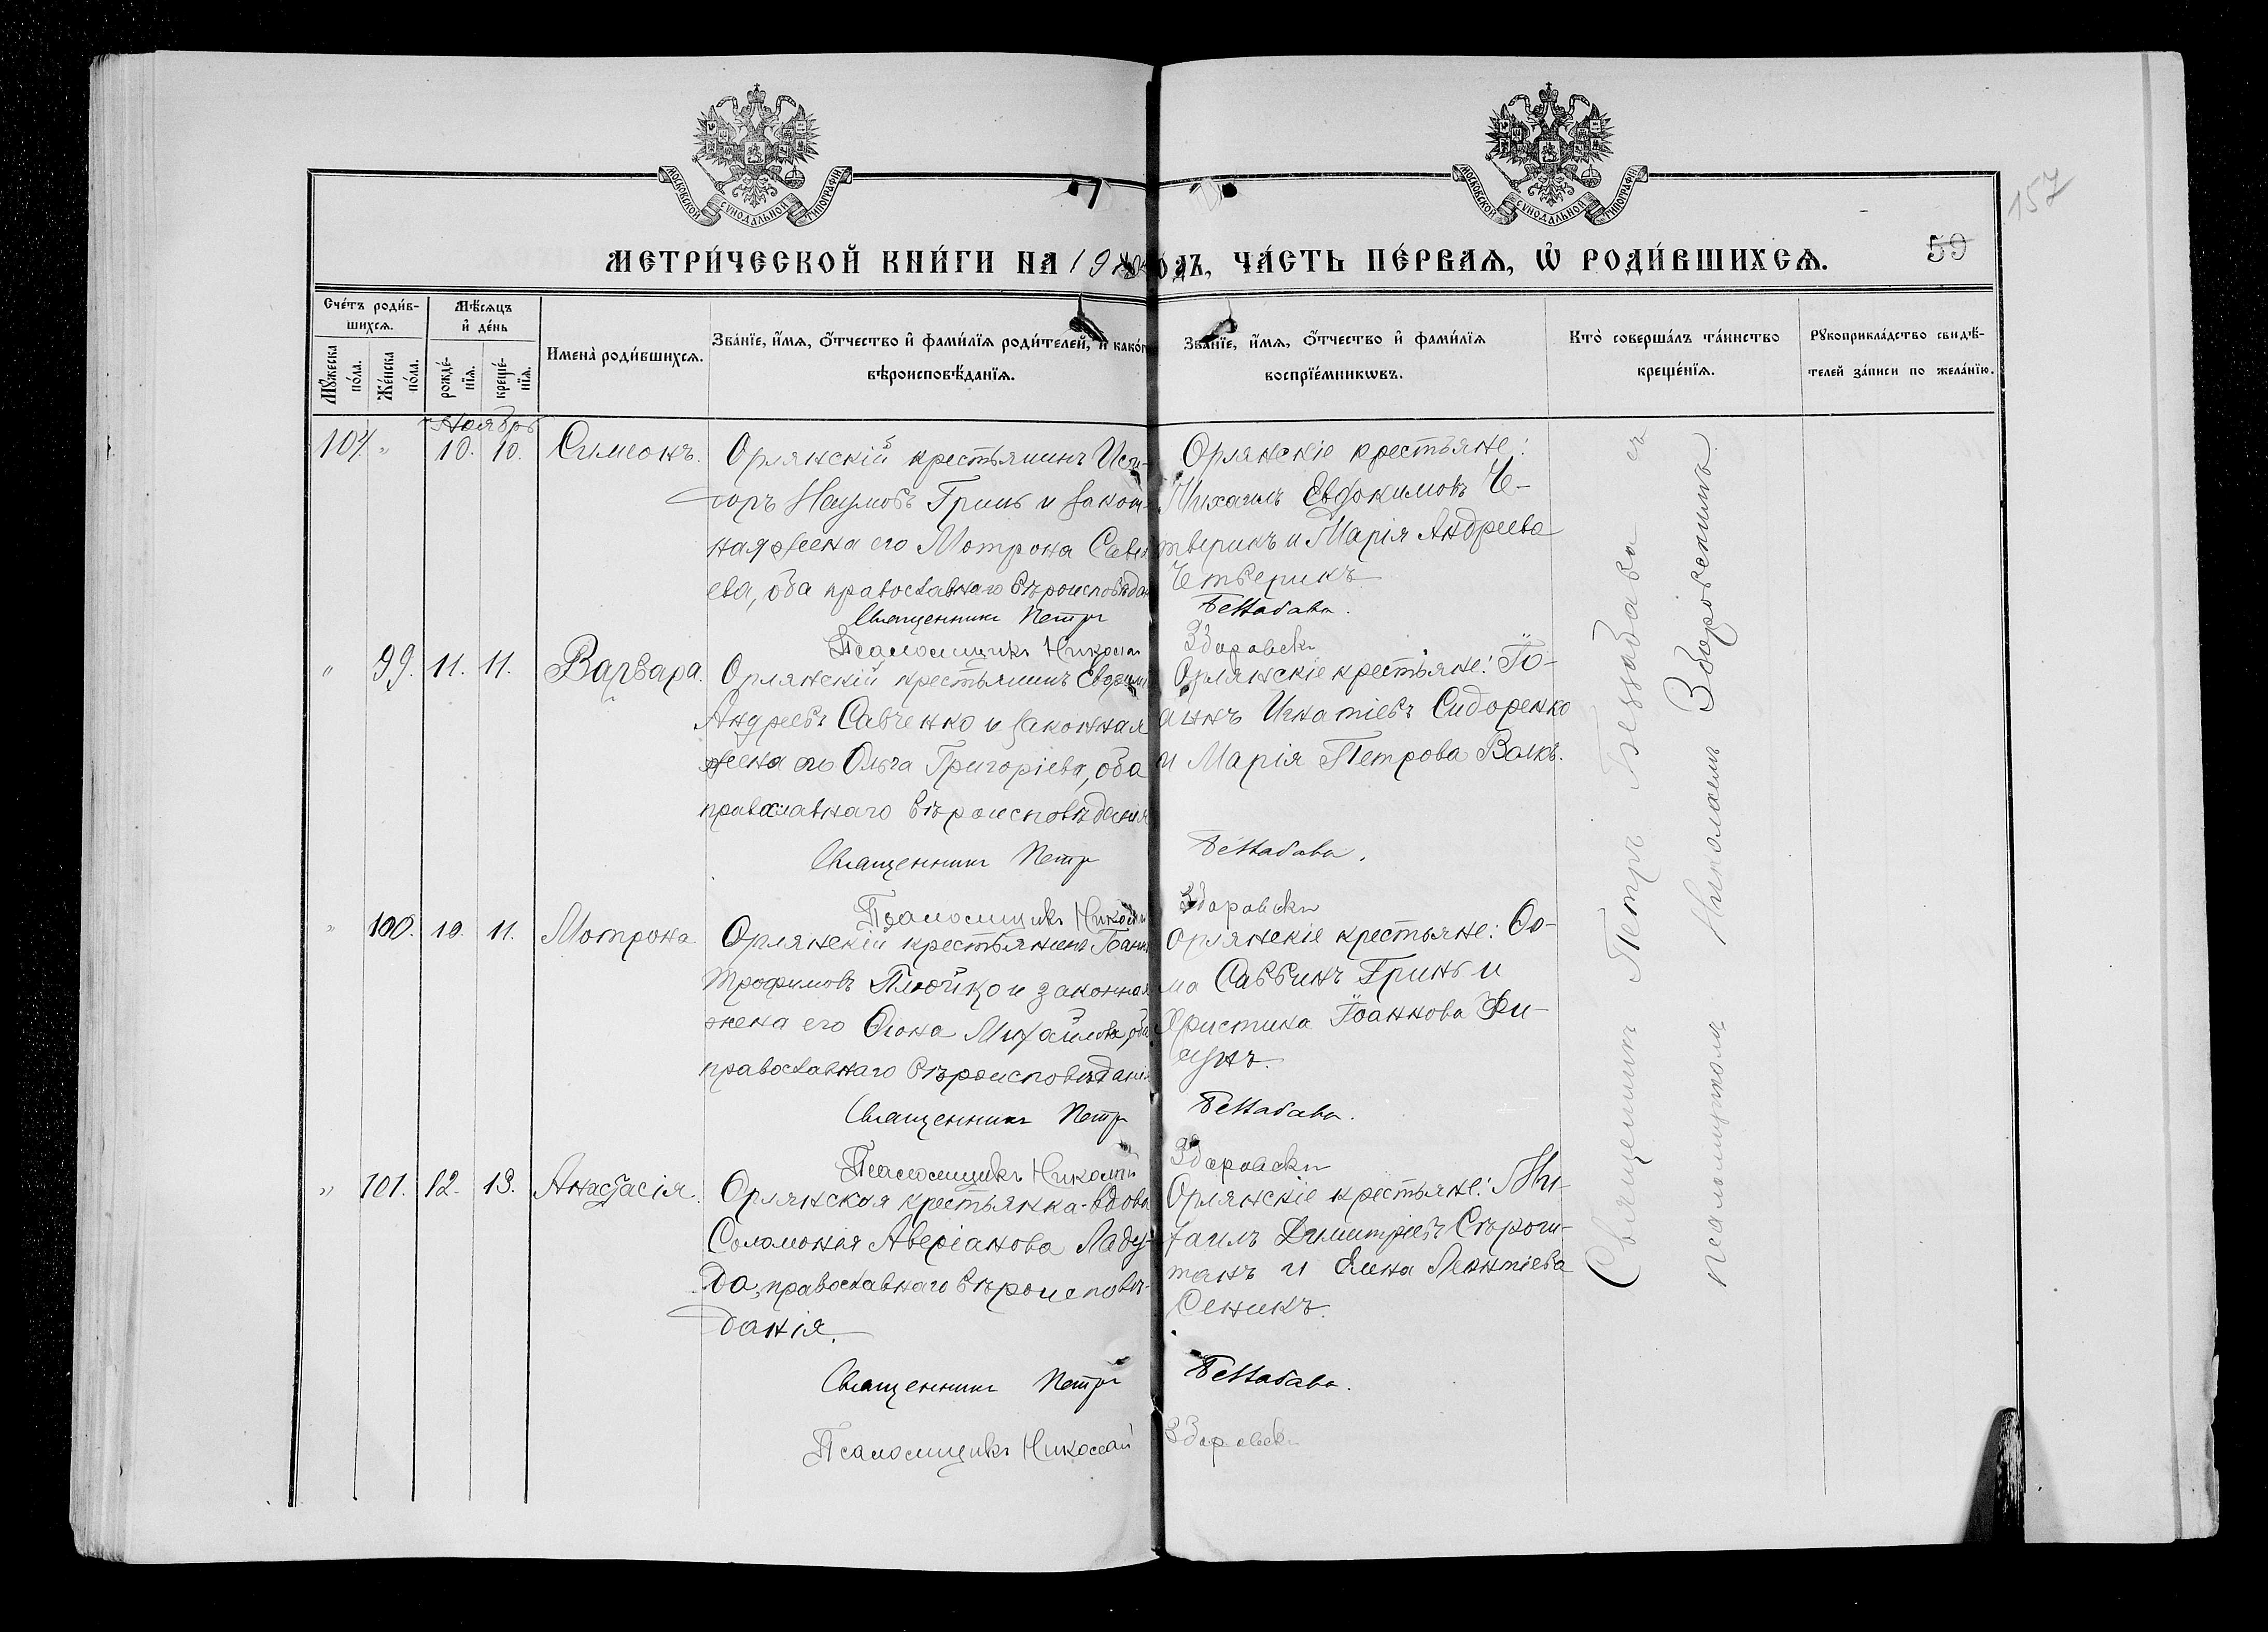 МОСКОВСКОЙ СѴНОДАЛЬНОЙ ТИПОГРАФІИ
МОСКОВСКОЙ СѴНОДАЛЬНОЙ ТИПОГРАФІИ
157
59
МЕТРИ́ЧЕСКОЙ КНИ́ГИ НА 19 годъ, ЧА́СТЬ ПЕ́РВАѦ, Ѡ РОДИ́ВШИХСѦ.
Счетъ роди́в-
шихсѧ.
Мꙋжеска по́ла.
Же́нска по́ла.
Мѣ́сѧцъ
и де́нь
рожде́-
нїѧ.
креще́-
нїѧ.
Имена̀ роди́вшихсѧ.
Зва́нїе, и́мѧ, ѻ́тчество и фами́лїѧ роди́телей, и како́гѡ
вѣроисповѣ́данїѧ.
Зва́нїе, и́мѧ, ѻ́тчество и фами́лїѧ
воспрїе́мникѡвъ.
Кто̀ соверша́лъ та́инство
креще́нїѧ.
Рꙋкоприкла́дство свидѣ́-
телей за́писи по жела́нїю.
Ноябрь
104 " 10. 10. Симеонъ.
Орлянскій крестьянинъ Иси-
доръ Наумовъ Гринь и закон-
ная жена его Мотрона Савви-
ева, оба православнаго вѣроисповѣдан
Священникъ Петръ
Псаломщикъ Николай
Орлянскіе крестьяне:
Михаилъ Евдокимовъ Че-
тверикъ и Марія Андреева
Четверикъ
Беззабава.
Здоровски
" 99. 11. 11. Варвара.
Орлянскій крестьянинъ Евфимій
Андреевъ Савченко и законная
жена его Ольга Григоріева, оба
православнаго вѣроисповѣданія
Священникъ Петр
Псаломщикъ Николай
Орлянскіе крестьяне: Іо-
аннъ Игнатіевъ Сидоренко
и Марія Петрова Волкъ.
Беззабава.
Здоровски
" 100. 10. 11. Мотрона
Орлянскій крестьянинъ Іоаннъ
Трофимовъ Плюйко и законная
жена его Ѳіона Михайлова, оба
православнаго вѣроисповѣданія
Священникъ Петр
Псаломщикъ Николай
Орлянскіе крестьяне: Ѳо-
ма Саввинъ Гринь и
Христина Іоаннова Фи-
цунъ.
Беззабава.
Здоровски
" 101. 12. 13. Анастасія.
Орлянская крестьянка-вдова
Соломонія Аверіанова Ладу-
да, православнаго вѣроисповѣ-
данія.
Священникъ Петръ
Псаломщикъ Николай
Орлянскіе крестьяне: Ми-
хаилъ Димитріевъ Сѣроги-
танъ и Елена Леонтіева
Сеникъ.
Беззабава.
Здоровски
Священникъ Петръ Беззабава съ
псаломщикомъ Николаемъ Здоровскимъ